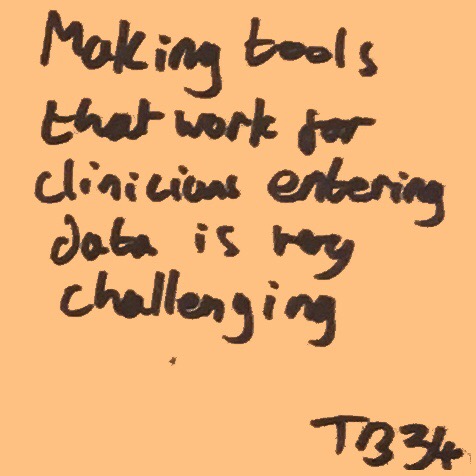 Making tools
that work for
clinicians entering
data is very
challenging
TB34